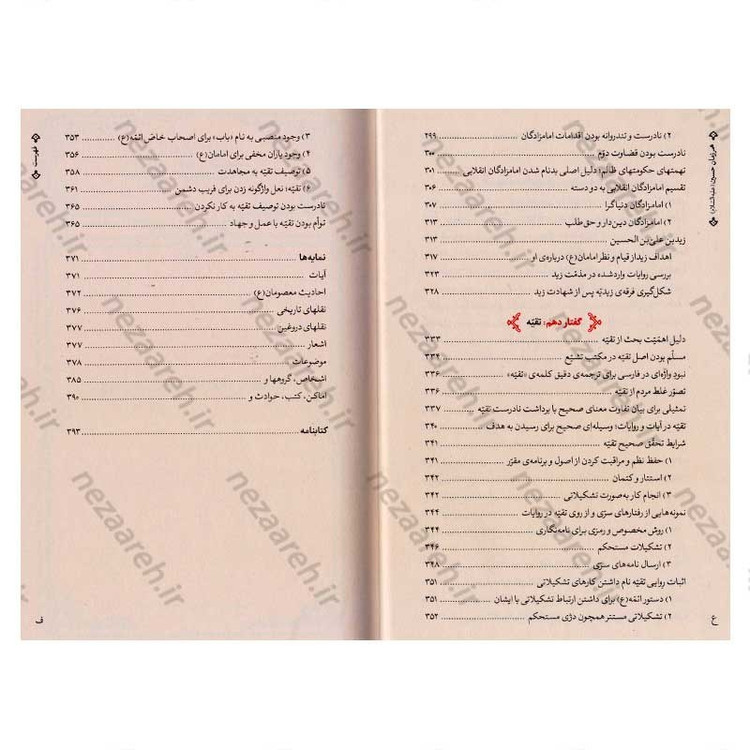 همرزمان حسین (علیه‌السّلام)
۲) نادرست و تندروانه بودن اقدامات امامزادگان ۲۹۹
نادرست بودن قضاوت دوّم ۳۰۰
تهمتهای حکومتهای ظالم؛ دلیل اصلی بدنام شدن امامزادگان انقلابی ۳۰۱
تقسیم امامزادگان انقلابی به دو دسته ۳۰۶
۱) امامزادگان دنیاگرا ۳۰۷
۲) امامزادگان دین‌دار و حق‌طلب ۳۱۳
زیدبن‌علی‌بن‌الحسین ۳۱۳
اهداف زید از قیام و نظر امامان(ع) درباره‌ی او ۳۱۷
بررسی روایات واردشده در مذمّت زید ۳۲۳
شکل‌گیری فرقه‌ی زیدیّه پس از شهادت زید ۳۲۸
گفتار دهم: تقیّه
دلیل اهمّیّت بحث از تقیّه ۳۳۳
مسلّم بودن اصل تقیّه در مکتب تشیّع ۳۳۴
نبودِ واژه‌ای در فارسی برای ترجمه‌ی دقیق کلمه‌ی «تقیّه» ۳۳۶
تصوّر غلط مردم از تقیّه ۳۳۶
تمثیلی برای بیان تفاوت معنای صحیح با برداشت نادرست تقیّه ۳۳۷
تقیّه در آیات و روایات؛ وسیله‌ای صحیح برای رسیدن به هدف ۳۴۰
شرایط تحقّق صحیح تقیّه ۳۴۱
۱) حفظ نظم و مراقبت کردن از اصول و برنامه‌ی مقرّر ۳۴۱
۲) استتار و کتمان ۳۴۱
۳) انجام کار به‌صورت تشکیلاتی ۳۴۲
نمونه‌هایی از رفتارهای سرّی و از روی تقیّه در روایات ۳۴۴
۱) روش مخصوص و رمزی برای نامه‌نگاری ۳۴۴
۲) تشکیلات مستحکم ۳۴۶
۳) ارسال نامه‌های سرّی ۳۴۸
اثبات روایی تقیّه نام داشتن کارهای تشکیلاتی ۳۵۱
۱) دستور ائمّه(ع) برای داشتن ارتباط تشکیلاتی با ایشان ۳۵۱
۲) تشکیلاتی مستتر همچون دژی مستحکم ۳۵۲
ع
فهرست
۳) وجود منصبی به نام «باب» برای اصحاب خاصّ ائمّه(ع) ۳۵۳
۴) وجود یاران مخفی برای امامان(ع) ۳۵۶
۵) توصیف تقیّه به مجاهدت ۳۵۸
۶) تقیّه؛ نعل واژگونه زدن برای فریب دشمن ۳۶۱
نادرست بودن توصیف تقیّه به کار نکردن ۳۶۵
توأم بودن تقیّه با عمل و جهاد ۳۶۵
نمایه‌ها ۳۷۱
آیات ۳۷۱
احادیث معصومان(ع) ۳۷۲
نقلهای تاریخی ۳۷۶
نقلهای دروغین ۳۷۷
اشعار ۳۷۷
موضوعات ۳۷۸
اشخاص، گروهها و ۳۸۵
اماکن، کتب، حوادث و ۳۹۰
کتابنامه ۳۹۳
ف
nezaareh.ir